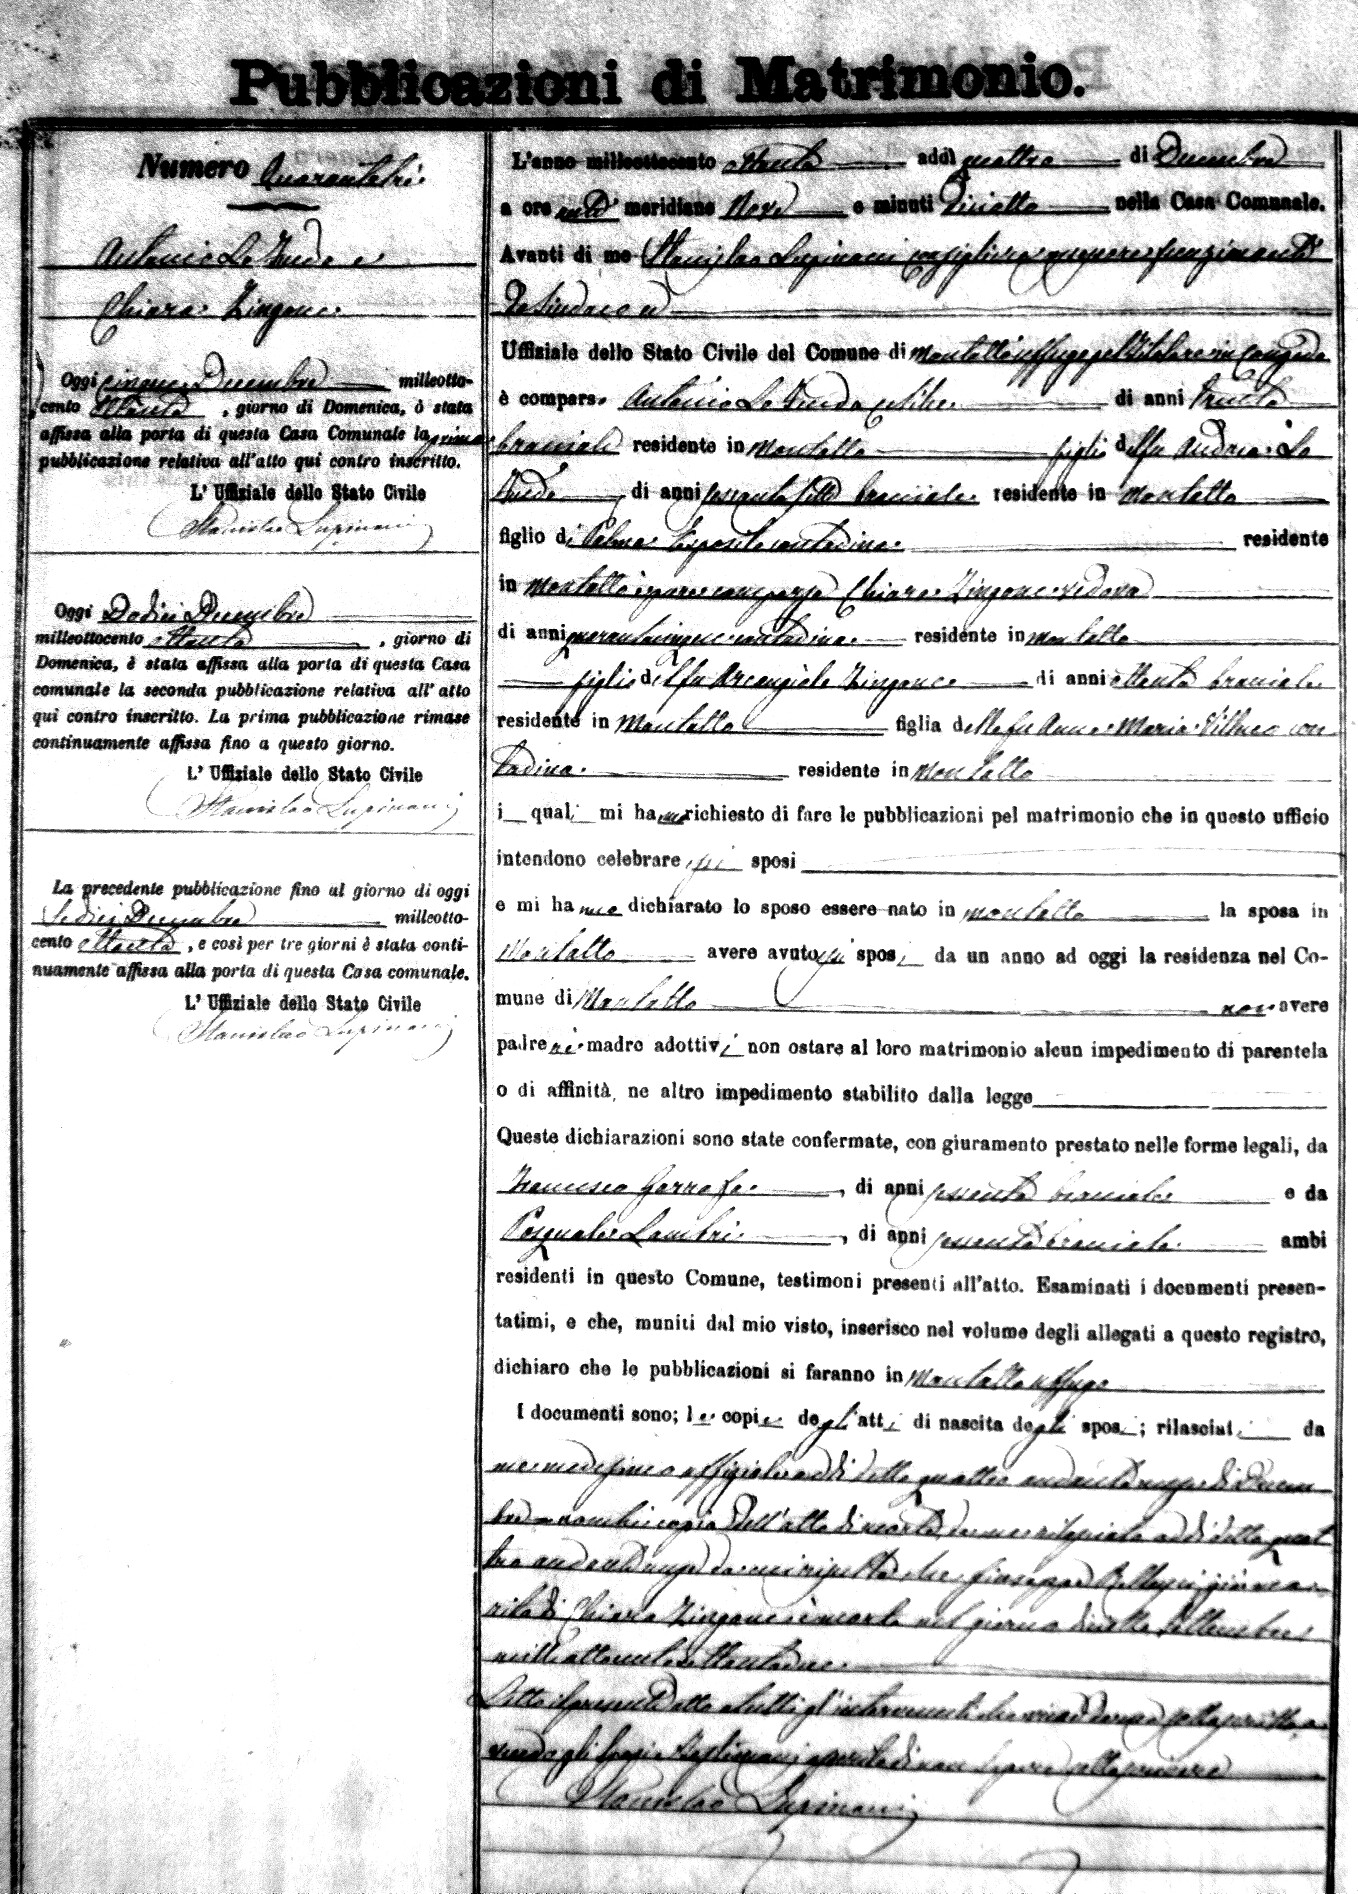 Pubblicazioni di Matrimonio.
Numero Quarantatrè
Antonio Lo Feudo e
Chiara Zingone
Oggi cinque Decembre milleotto-
cento ottanta, giorno di Domenica, è stata
affissa alla porta di questa Casa Comunale la prima
pubblicazione relativa all'atto qui contro inscritto.
L' Uffiziale dello Stato Civile
Stanislao Lupinacci
Oggi Dodici Decembre
milleottocento ottanta, giorno di
Domenica, è stata affissa alla porta di questa Casa
comunale la seconda pubblicazione relativa all' atto
qui contro inscritto. La prima pubblicazione rimase
continuamente affissa fino a questo giorno.
L' Uffiziale dello Stato Civile
Stanislao Lupinacci
La precedente pubblicazione fino al giorno di oggi
Sedici Decembre milleotto-
cento ottanta, e così per tre giorni è stata conti-
nuamente affissa alla porta di questa Casa comunale.
L' Uffiziale dello Stato Civile
Stanislao Lupinacci
L'anno milleottocento ottanta addì quattro di Decembre
a ore anti meridiane Nove e minuti diciotto nella Casa Comunale.
Avanti di me Stanislao Lupinacci consigliere funzionante
da Sindaco ed
Uffiziale dello Stato Civile del Comune di Montalto Uffugo pel titolare in congedo
è comparso Antonio Lo Feudo celibe di anni trenta
bracciale residente in Montalto figlio del fu Andrea Lo
Feudo di anni sessantasette bracciale residente in Montalto
figlio di Palma Esposito contadina residente
in Montalto è pure comparsa Chiara Zingone vedova
di anni quarantacinque contadina residente in Montalto
figlia del fu Arcangelo Zingone di anni ottanta bracciale
residente in Montalto figlia della fu Anna Maria con-
tadina residente in Montalto
i quali mi hanno richiesto di fare le pubblicazioni pel matrimonio che in questo ufficio
intendono celebrare essi sposi
e mi hanno dichiarato lo sposo essere nato in Montalto la sposa in
Montalto avere avuto gli sposi da un anno ad oggi la residenza nel Co-
mune di Montalto non avere
padre nè madre adottivi non ostare al loro matrimonio alcun impedimento di parentela
o di affinità, ne altro impedimento stabilito dalla legge
Queste dichiarazioni sono state confermate, con giuramento prestato nelle forme legali, da
Francesco Garrafa, di anni sessanta bracciale e da
Pasquale Lambri, di anni sessanta bracciale ambi
residenti in questo Comune, testimoni presenti all'atto. Esaminati i documenti presen-
tatimi, e che, muniti dal mio visto, inserisco nel volume degli allegati a questo registro,
dichiaro che le pubblicazioni si faranno in Montalto Uffugo
I documenti sono; le copie degli atti di nascita degli sposi; rilasciati da
me medesimo uffiziale addì detto quattro andante mese di Decem
bre copia dell'atto di morte da me rilasciata addì detto quat
tro andante mese da cui risulta che Giuseppe già ma-
rito di Chiara Zingone è morto nel giorno diciotto Settembre
mille ottocento settantadue
Letto il presente atto a tutti gl'intervenuti
di non sapere sottoscrivere
Stanislao Lupinacci